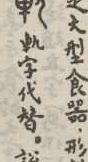 是大型食器，形
軌字代替。說